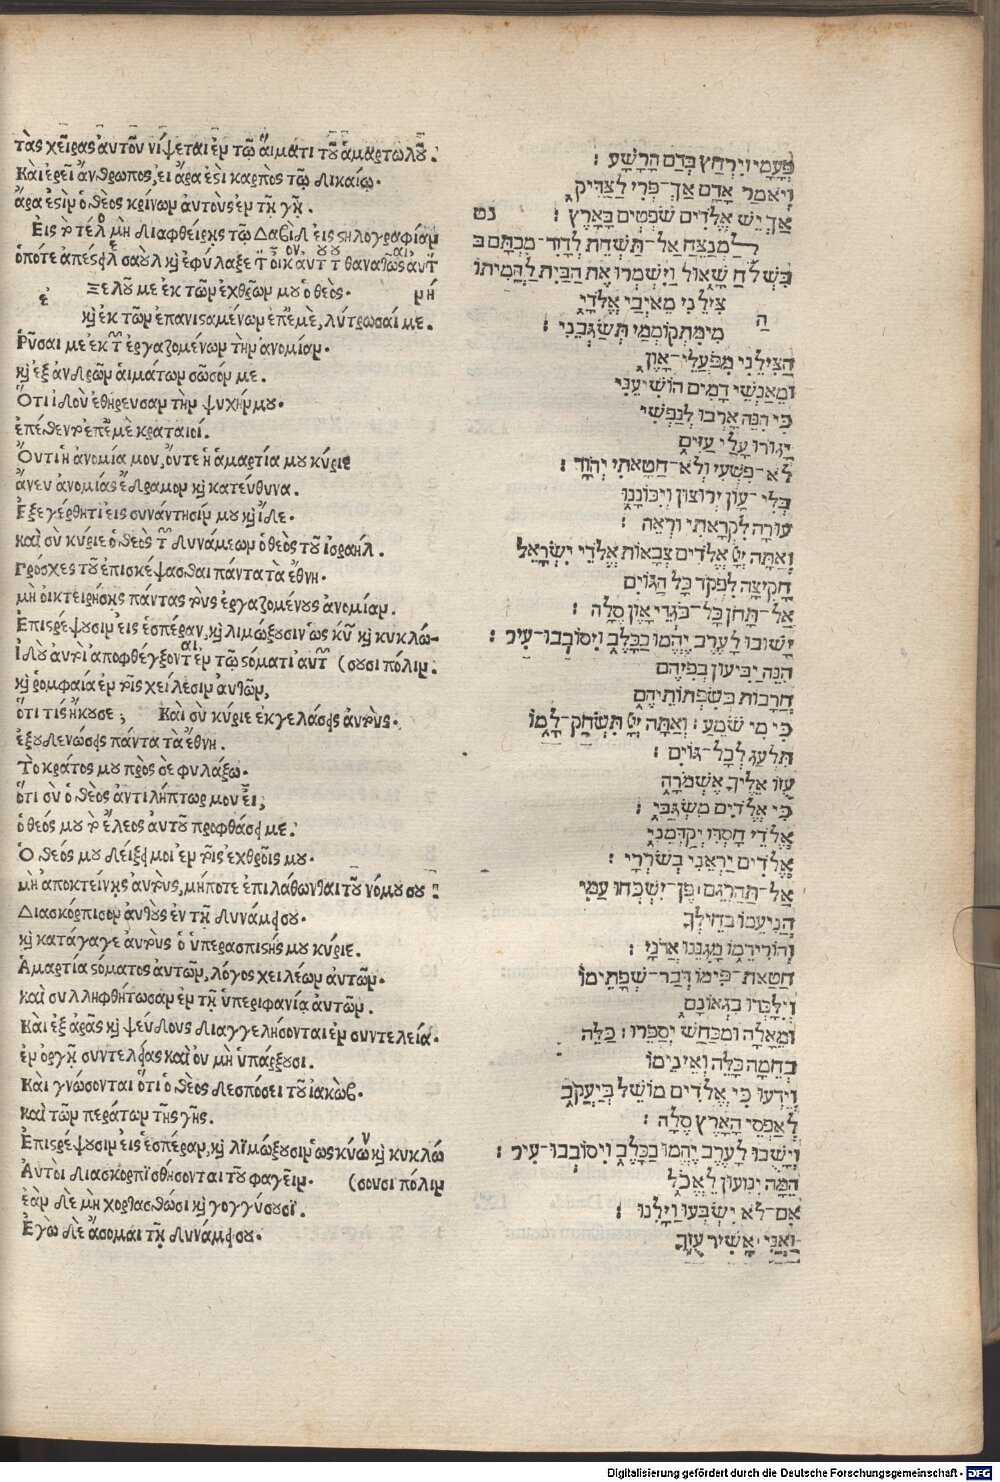 τὰς χεῖρας ἀυτοῦ νίψεται ἐν τῷ αἵματι τοῦ ἁμαρτωλοῦ.
Καὶ ἐρεῖ ἄνθρωπος, εἰ ἄρα ἐστὶ καρπὸς τῷ δικαίῳ.
ἄρα ἐστὶν ὁ θεὸς κρίνων ἀυτοὺς ἐν τῇ γῇ.
Εἰς τὸ τέλος μὴ διαφθείρῃς τῷ Δαβὶδ εἰς στηλογραφίαν
ὁπότε ἀπέστειλε σαοὺλ καὶ ἐφύλαξε τὸν οἶκον ἀυτοῦ τοῦ θανατῶσαι ἀυτὸν
Ξελοῦ με ἐκ τῶν ἐχθρῶν μου ὁ θεός. ρή
ἐ καὶ ἐκ τῶν ἐπανισταμένων ἐπ' ἐμὲ, λύτρωσαί με.
Ρῦσαι με ἐκ τῶν ἐργαζομένων τὴν ἀνομίαν.
καὶ ἐξ ἀνδρῶν αἱμάτων σῶσόν με.
Ὅτι ἰδοὺ ἐθήρευσαν τὴν ψυχήν μου.
ἐπέθεντο ἐπ' ἐμὲ κραταιοί.
Ὄυτι ἡ ἀνομία μου, ὄυτε ἡ ἁμαρτία μου κύριε
ἄνευ ἀνομίας ἔδραμον καὶ κατέυθυνα.
Ἐξεγέρθητι εἰς συνάντησίν μου καὶ ἴδε.
καὶ σὺ κύριε ὁ θεὸς τῶν δυνάμεων ὁ θεὸς τοῦ ἰσραήλ.
Πρόσχες τοῦ ἐπισκέψασθαι πάντα τὰ ἔθνη.
μὴ οἰκτειρήσῃς πάντας τοὺς ἐργαζομένους ἀνομίαν.
Ἐπιστρέψουσιν εἰς ἑσπέραν, καὶ λιμώξουσιν ὡς κύων καὶ κυκλώ-
Ἰδοὺ ἀυτοὶ ἀποφθέγξονται ἐν τῷ στόματι ἀυτῶν (σουσι πόλιν.
καὶ ῥομφαία ἐν τοῖς χείλεσιν ἀυτῶν,
ὅτι τίς ἤκουσε; Καὶ σὺ κύριε ἐκγελάσεις ἀυτούς.
ἐξουδενώσεις πάντα τὰ ἔθνη.
Τὸ κράτος μου πρὸς σὲ φυλάξω.
ὅτι σὺ ὁ θεὸς ἀντιλήπτωρ μου εἶ,
ὁ θεός μου τὸ ἔλεος ἀυτοῦ προφθάσει με.
Ὁ θεός μου δείξει μοι ἐν τοῖς ἐχθροῖς μου.
μὴ ἀποκτείνῃς ἀυτοὺς, μήποτε ἐπιλάθωνται τοῦ νόμου σου
Διασκόρπισον ἀυτοὺς ἐν τῇ δυνάμει σου.
καὶ κατάγαγε ἀυτοὺς ὁ ὑπερασπιστής μου κύριε.
Ἁμαρτία στόματος ἀυτῶν, λόγος χειλέων ἀυτῶν.
καὶ συλληφθήτωσαν ἐν τῇ ὑπεριφανίᾳ ἀυτῶν.
Καὶ ἐξ ἀρᾶς καὶ ψέυδους διαγγελήσονται ἐν συντελείᾳ.
ἐν ὀργῇ συντελείας καὶ ὀυ μὴ ὑπάρξουσι.
Καὶ γνώσονται ὅτι ὁ θεὸς δεσπόσει τοῦ ἰακώβ.
καὶ τῶν περάτων τῆς γῆς.
Ἐπιστρέψουσιν εἰς ἑσπέραν, καὶ λιμώξουσιν ὡς κύων καὶ κυκλώ
Ἀυτοὶ διασκορπισθήσονται τοῦ φαγεῖν. (σουσι πόλιν
ἐὰν δὲ μὴ χορτασθῶσι καὶ γογγύσουσι.
Ἐγὼ δὲ ἄσομαι τῇ δυνάμει σου.
פְּעָמָיו יִרְחַץ בְּדַם הָרָשָׁע׃
וְיֹאמַר אָדָם אַךְ־פְּרִי לַצַּדִּיק
אַךְ יֵשׁ אֱלֹדִים שֹׁפְטִים בָּאָרֶץ׃ נט
לַמְנַצֵּחַ אַל־תַּשְׁחֵת לְדָוִד־מִכְתָּם ב
בִּשְׁלֹחַ שָׁאוּל וַיִּשְׁמְרוּ אֶת הַבַּיִת לַהֲמִיתוֹ
צִילֵנִי מֵאֹיְבַי אֱלֹדָי
ה מִימִתְקוֹמְמַי תְּשַׂגְּבֵנִי׃
הַצִּילֵנִי מִפֹּעֲלֵי־אָוֶן
וּמֵאַנְשֵׁי דָמִים הוֹשִׁיעֵנִי
כִּי הִנֵּה אָרְבוּ לְנַפְשִׁי
יָגוּרוּ עָלַי עַזִּים
לֹא־פִשְׁעִי וְלֹא־חַטָּאתִי יְהֹוָד׃
בְּלִי־עָוֹן יְרוּצוּן וְיִכּוֹנָנוּ
עוּרָה לִקְרָאתִי וּרְאֵה׃
וְאַתָּה יְיָ אֱלֹדִים צְבָאוֹת אֱלֹדֵי יִשְׂרָאֵל
הָקִיצָה לִפְקֹד כָּל הַגּוֹיִם
אַל־תָּחֹן כָּל־בֹּגְדֵי אָוֶן סֶלָה׃
יָשׁוּבוּ לָעֶרֶב יֶהֱמוּ כַכָּלֶב וִיסוֹבְבוּ־עִיר׃
הִנֵּה יַבִּיעוּן בְּפִיהֶם
חֲרָבוֹת בְּשִׂפְתוֹתֵיהֶם
כִּי מִי שֹׁמֵעַ׃ וְאַתָּה יְיָ תִּשְׂחַק־לָמוֹ
תִּלְעַג לְכָל־גּוֹיִם׃
עֻזּוֹ אֵלֶיךָ אֶשְׁמֹרָה
כִּי אֱלֹדִים מִשְׂגַּבִּי׃
אֱלֹדֵי חַסְדּוֹ יְקַדְּמֵנִי
אֱלֹדִים יַרְאֵנִי בְשֹׁרְרָי׃
אַל־תַּהַרְגֵם׃ פֶּן־יִשְׁכְּחוּ עַמִּי
הֲנִיעֵמוֹ בְחֵילְךָ
וְהוֹרִידֵמוֹ מָגִנֵּנוּ אֲדֹנָי׃
חַטַּאת־פִּימוֹ דְּבַר־שְׂפָתֵימוֹ
וְיִלָּכְדוּ בִגְאוֹנָם
וּמֵאָלָה וּמִכַּחַשׁ יְסַפֵּרוּ׃ כַּלֵּה
בְחֵמָה כַּלֵּה וְאֵינֵימוֹ
וְיֵדְעוּ כִּי אֱלֹדִים מוֹשֵׁל בְּיַעֲקֹב
לְאַפְסֵי הָאָרֶץ סֶלָה׃
וְיָשֻׁבוּ לָעֶרֶב יֶהֱמוּ כַכָּלֶב וִיסוֹבְבוּ־עִיר׃
הֵמָּה יְנוּעוּן לֶאֱכֹל
אִם־לֹא יִשְׂבְּעוּ וַיָּלִינוּ׃
וַאֲנִי אָשִׁיר עֻזֶּךָ
Digitalisierung gefördert durch die Deutsche Forschungsgemeinschaft - DFG